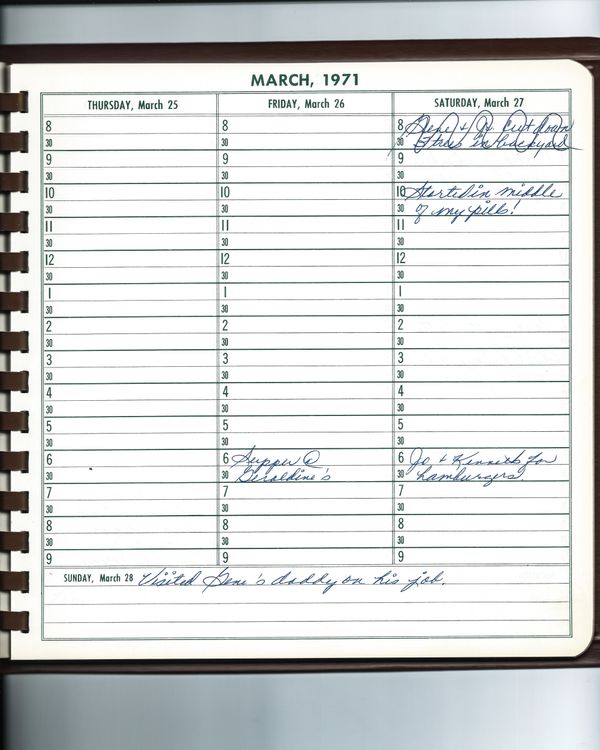 MARCH, 1971
THURSDAY, March 25
8
30
9
30
10
30
11
30
12
30
1
30
2
30
3
30
4
30
5
30
6
30
7
30
8
30
9
FRIDAY, March 26
8
30
9
30
10
30
11
30
12
30
1
30
2
30
3
30
4
30
5
30
6 Supper @
30 Geraldine's
7
30
8
30
9
SATURDAY, March 27
8 Gene & Jo. Cut down
30 trees in backyard
9
30
10 Started in middle
30 of my pills!
11
30
12
30
1
30
2
30
3
30
4
30
5
30
6 Jo & Kenneth for
30 hamburgers.
7
30
8
30
9
SUNDAY, March 28 Visited Gene's daddy on his job.